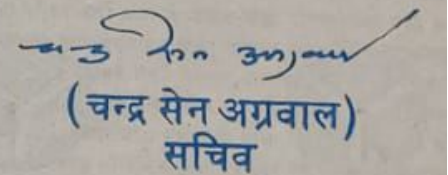 चन्द्र सेन अग्रवाल
(चन्द्र सेन अग्रवाल)
सचिव